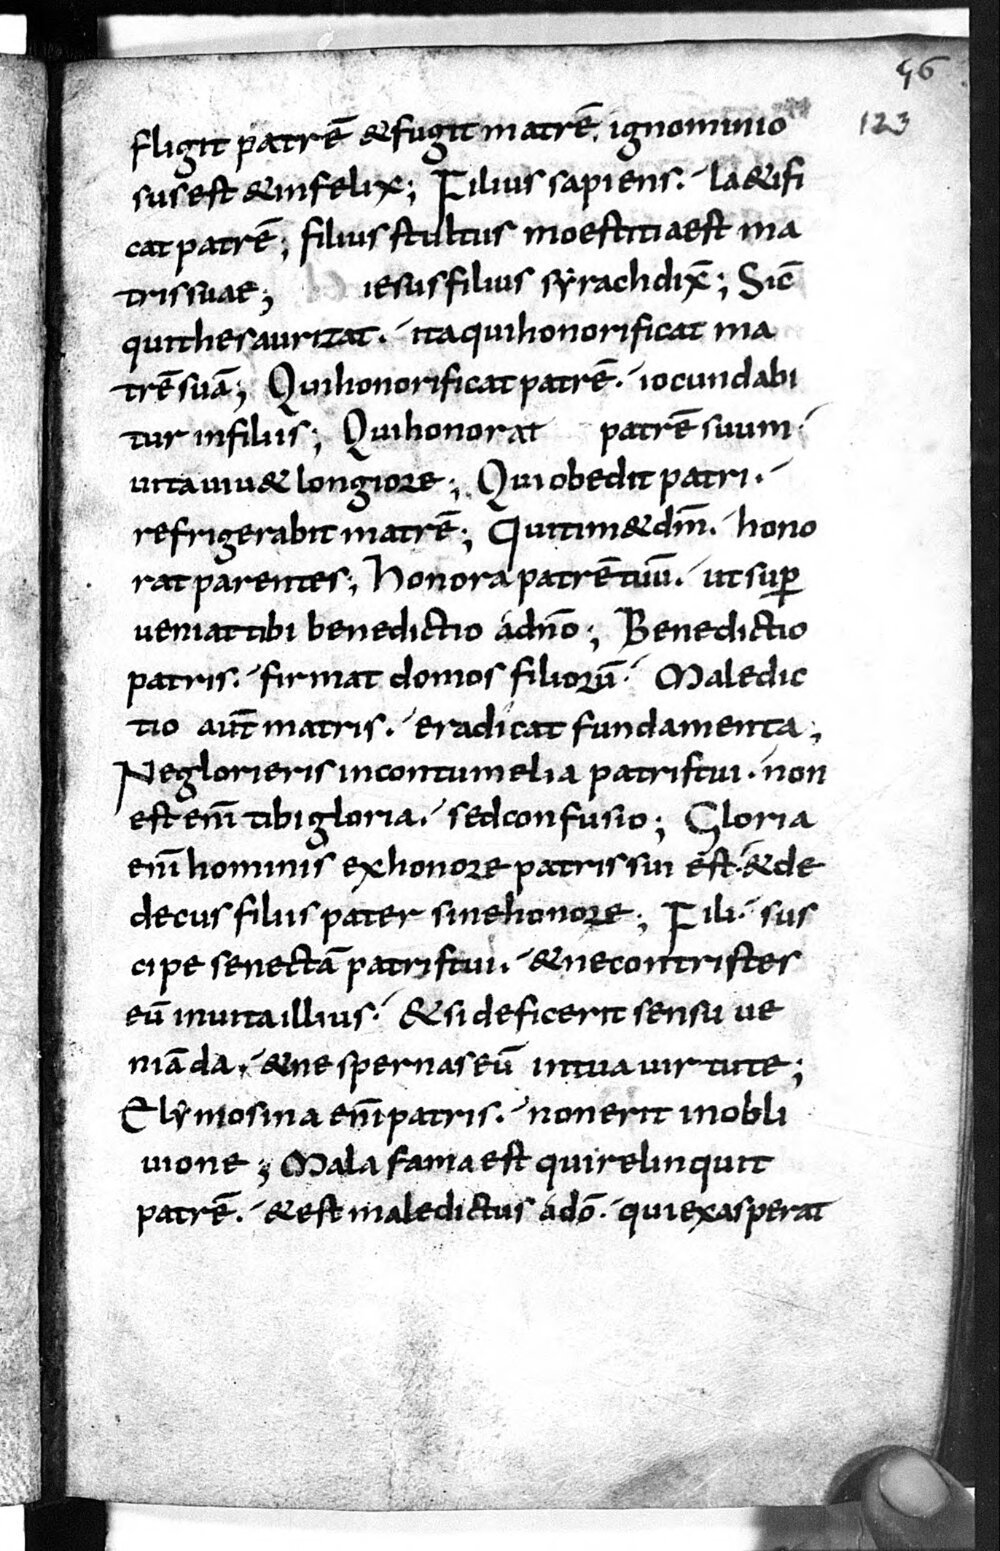 56
123
fligit patrē & fugit matrē. ignominio
sus est & infelix; Filius sapiens. la&ifi
cat patrē; filius stultus moestitia est ma
tris suae; iesus filius sẏrach dix̄; Sic̄
qui thesaurizat. ita qui honorificat ma
trē suā; Qui honorificat patrē. iocundabi
tur in filiis; Qui honorat patrē suum.
uita uiu& longiore; Qui obedit patri.
refrigerabit matrē; Qui tim& dm̄. hono
rat parentes; Honora patrē tuū. ut sup̄
ueniat tibi benedictio a dn̄o; Benedictio
patris. firmat domos filiorū. Maledic
tio aut̄ matris. eradicat fundamenta;
Ne glorieris in contumelia patris tui. non
est eni̅ tibi gloria. sed confusio; Gloria
eni̅ hominis ex honore patris sui est. & de
decus filiis pater sine honore; Fili. sus
cipe senectā patris tui. & ne contristes
eū in uita illius. & si deficerit sensu ue
niā da. & ne spernas eū in tua uirtute;
Elẏmosina eni̅ patris. non erit in obli
uione; Mala fama est qui relinquit
patrē. & est maledictus a dō. qui exasperat